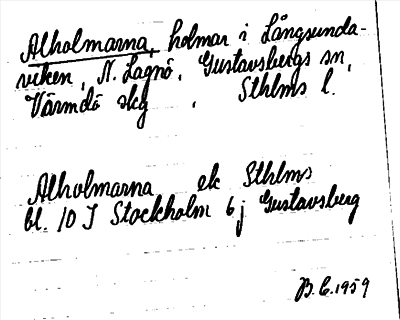 Alholmarna, holmar i Långsunda-
viken, N. Lagnö, Gustavsbergs sn,
Värmdö skg, Sthlms l.
Alholmarna ek Sthlms
bl. 10 I Stockholm 6 j Gustavsberg
B. C. 1959